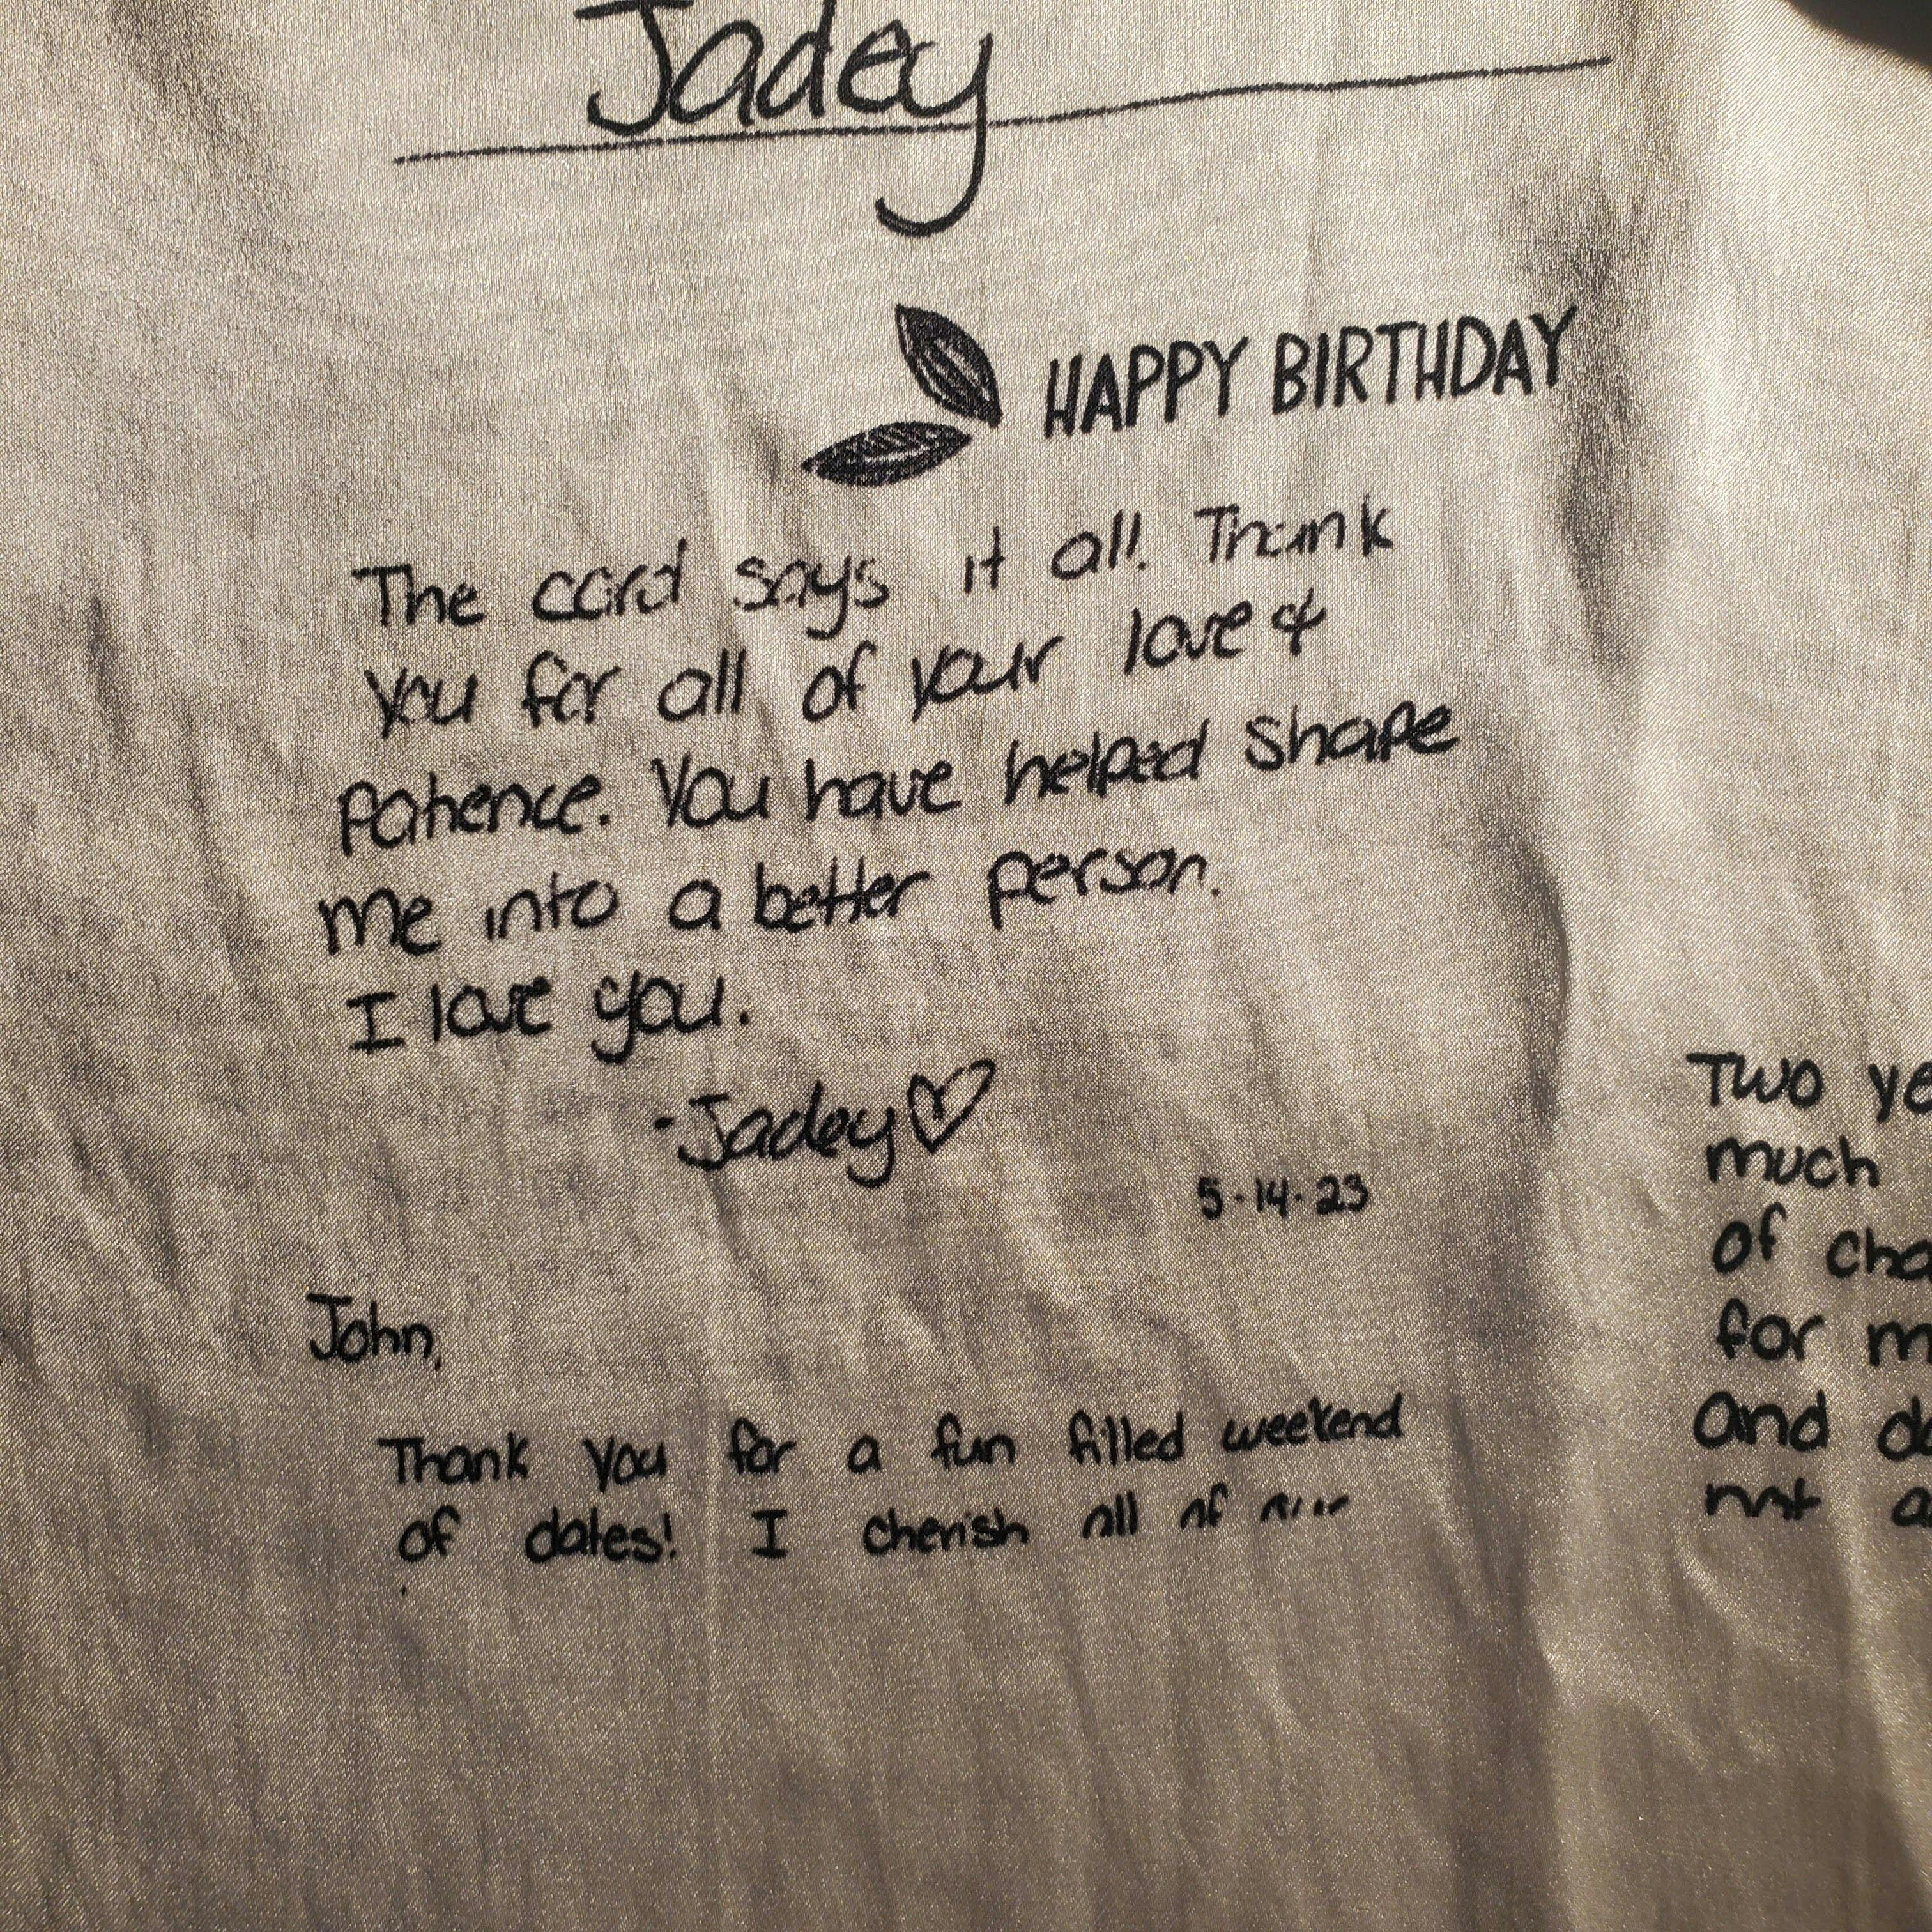 Jadey
HAPPY BIRTHDAY
The card says it all. Thank
you for all of your love &
patience. You have helped shape
me into a better person.
I love you.
-Jadey♡
5-14-23
John,
Thank you for a fun filled weekend
of dates! I cherish all of
Two
much
of
for
and
not